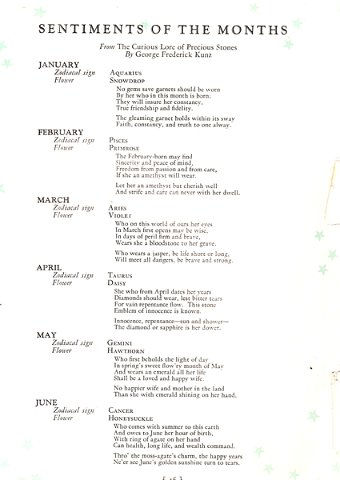 SENTIMENTS OF THE MONTHS
From The Curious Lore of Precious Stones
By George Frederick Kunz
JANUARY
Zodiacal sign AQUARIUS
Flower SNOWDROP
No gems save garnets should be worn
By her who in this month is born.
They will insure her constancy,
True friendship and fidelity.
The gleaming garnet holds within its sway
Faith, constancy, and truth to one alway.
FEBRUARY
Zodiacal sign PISCES
Flower PRIMROSE
The February-born may find
Sincerity and peace of mind,
Freedom from passion and from care,
If she an amethyst will wear.
Let her an amethyst but cherish well
And strife and care can never with her dwell.
MARCH
Zodiacal sign ARIES
Flower VIOLET
Who on this world of ours her eyes
In March first opens may be wise,
In days of peril firm and brave,
Wears she a bloodstone to her grave.
Who wears a jasper, be life short or long,
Will meet all dangers, be brave and strong.
APRIL
Zodiacal sign TAURUS
Flower DAISY
She who from April dates her years
Diamonds should wear, lest bitter tears
For vain repentance flow. This stone
Emblem of innocence is known.
Innocence, repentance—sun and shower—
The diamond or sapphire is her dower.
MAY
Zodiacal sign GEMINI
Flower HAWTHORN
Who first beholds the light of day
In spring's sweet flow'ry month of May
And wears an emerald all her life
Shall be a loved and happy wife.
No happier wife and mother in the land
Than she with emerald shining on her hand.
JUNE
Zodiacal sign CANCER
Flower HONEYSUCKLE
Who comes with summer to this earth
And owes to June her hour of birth,
With ring of agate on her hand
Can health, long life, and wealth command.
Thro' the moss-agate's charm, the happy years
Ne'er see June's golden sunshine turn to tears.